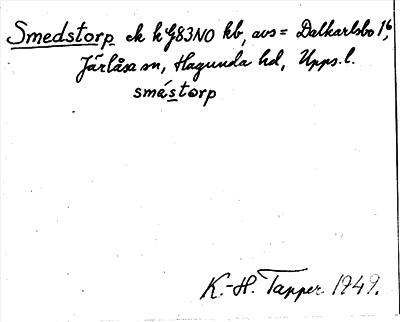 Smedstorp ek k G83NO kb, avs = Dalkarlsbo 1⁶,
Järlåsa sn, Hagunda hd, Upps. l.
smèstorp
K.-H. Tapper 1949.